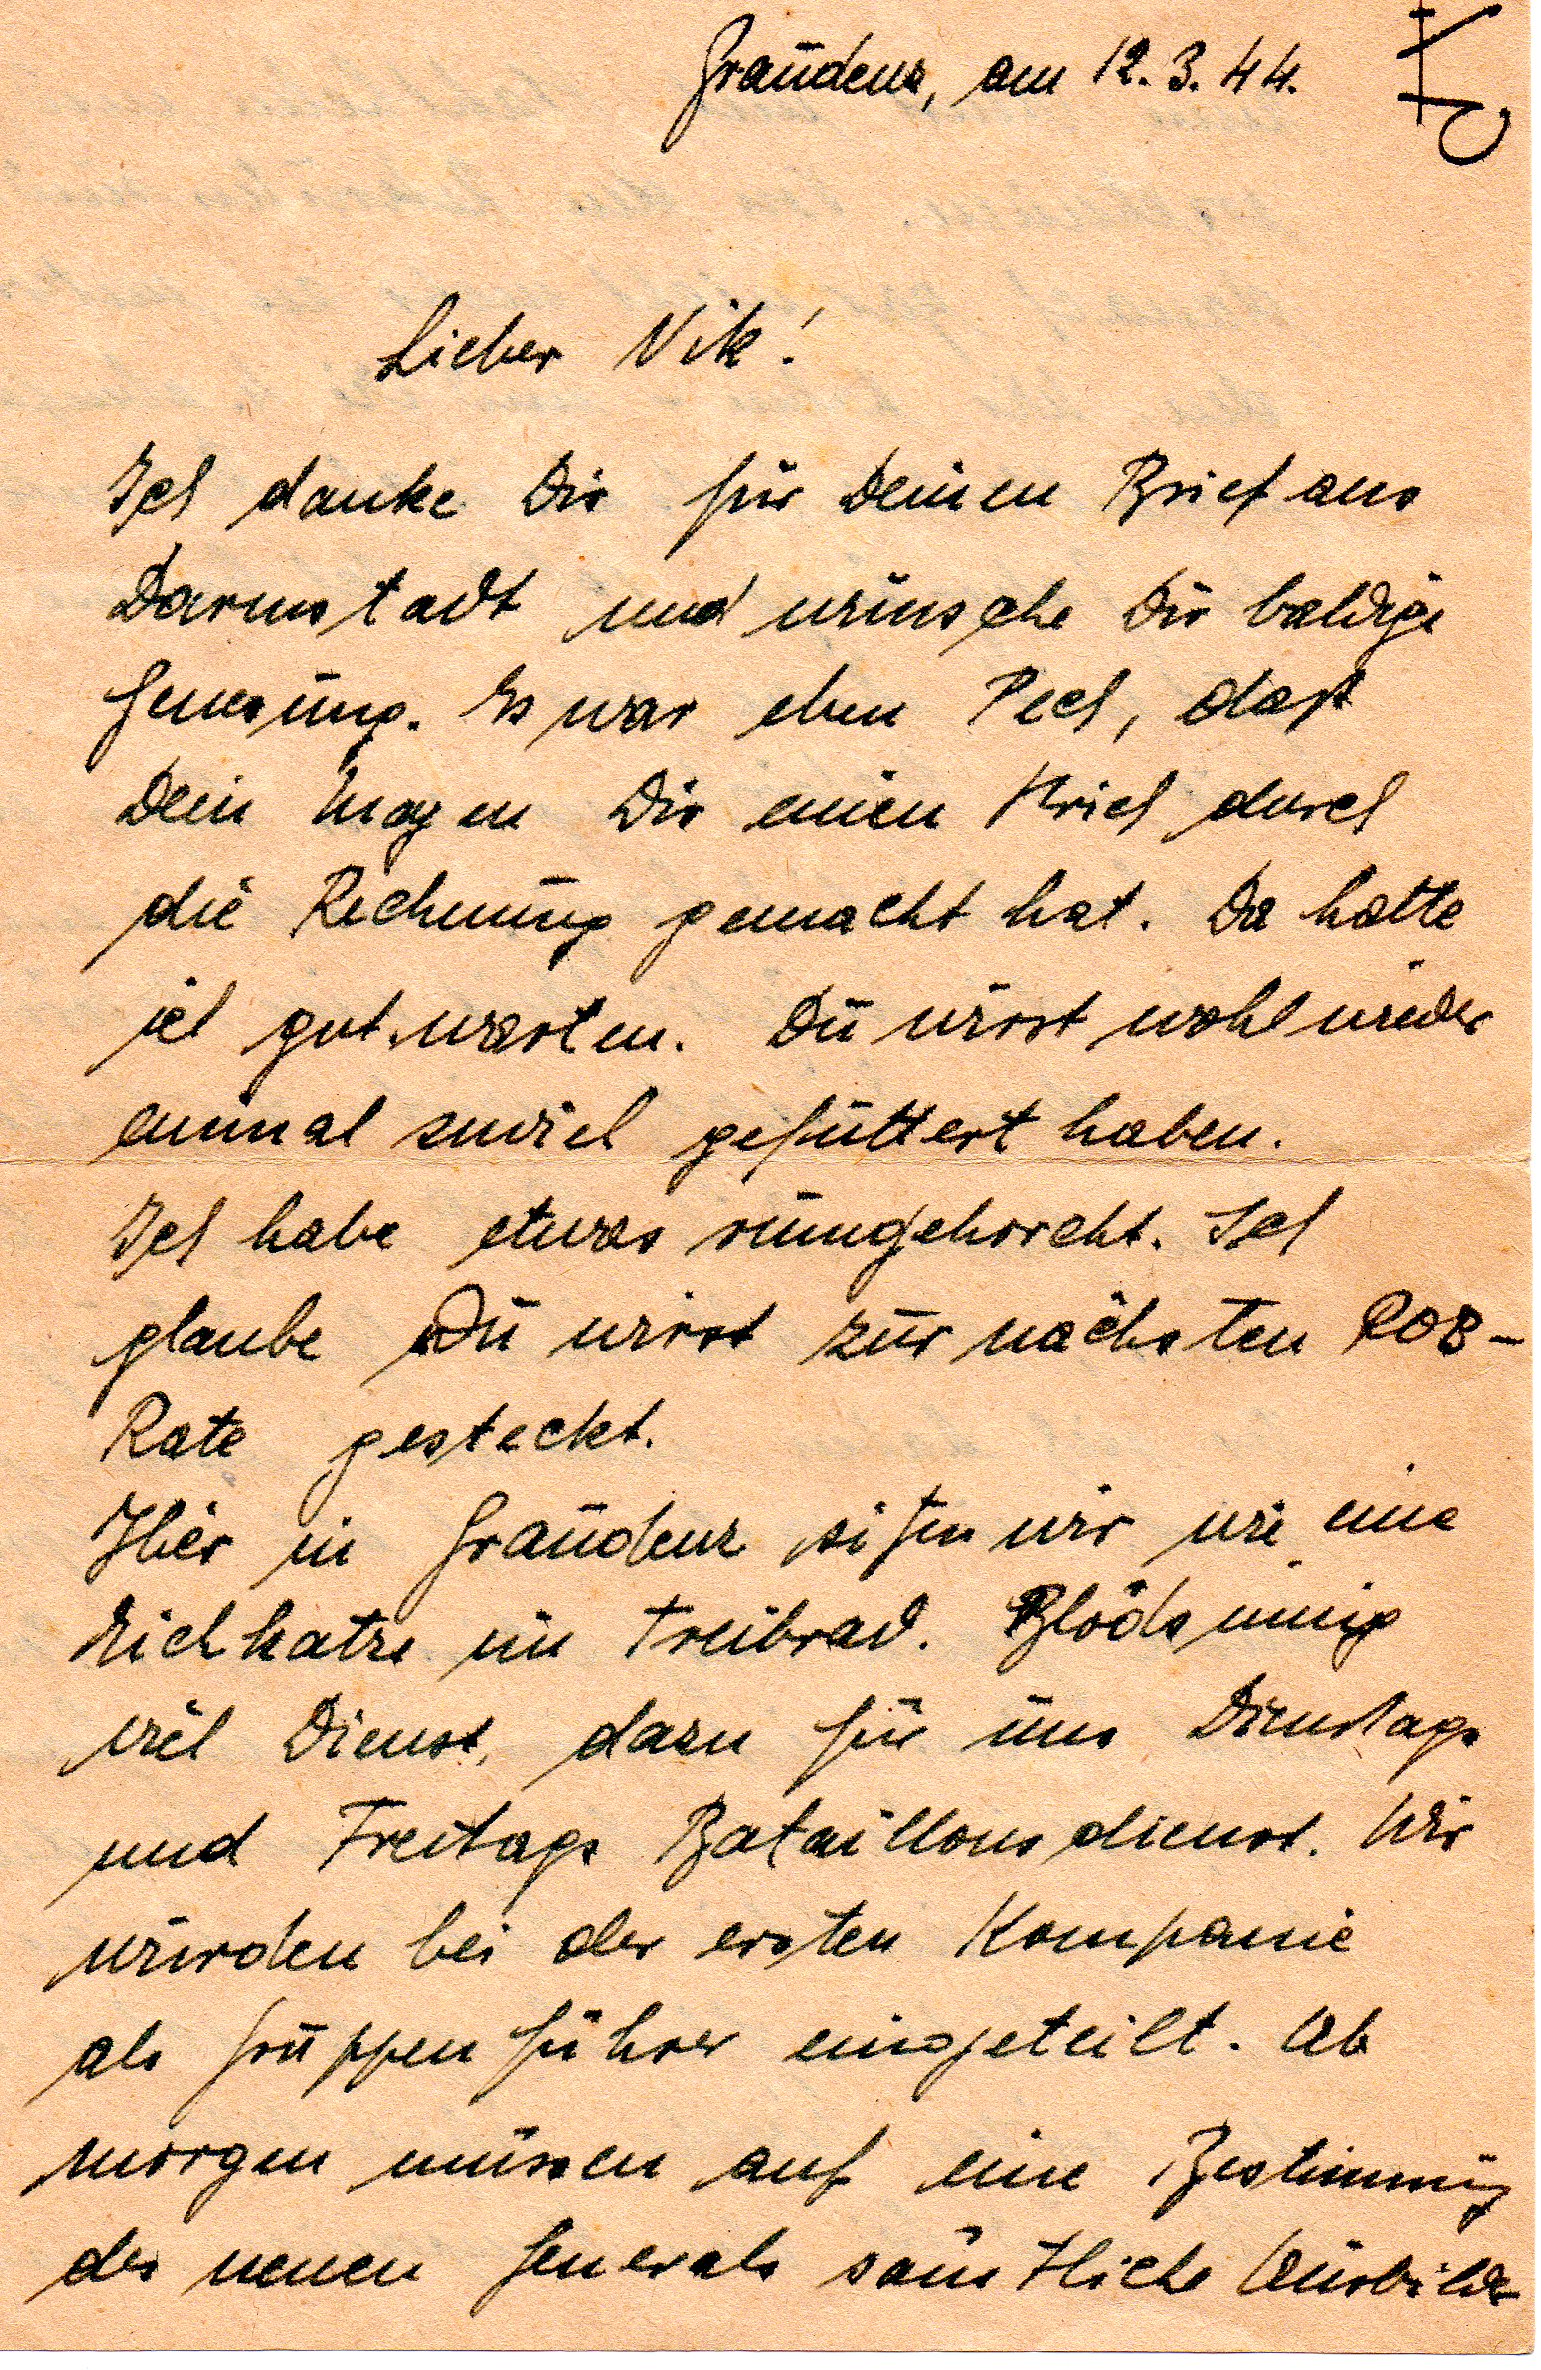 Graudenz, am 12.3.44.
Lieber Vik!
Ich danke Dir für Deinen Brief aus
Darmstadt und wünsche Dir baldige
Genesung. Es war eben Pech, daß
Dein Magen Dir einen Strich durch
die Rechnung gemacht hat. Da hatte
ich gut warten. Du wirst wohl wieder
einmal zuviel gefüttert haben.
Ich habe etwas rumgehorcht. Ich
glaube Du wirst zur nächsten ROB-
Rate gesteckt.
Hier in Graudenz sitzen wir wie eine
Eichkatze im Treibrad. Blödsinnig
viel Dienst, dazu für uns Dienstags
und Freitags Bataillonsdienst. Wir
wurden bei der ersten Kompanie
als Gruppenführer eingeteilt. Ab
morgen müssen auf eine Bestimmung
des neuen Generals sämtliche Ausbild